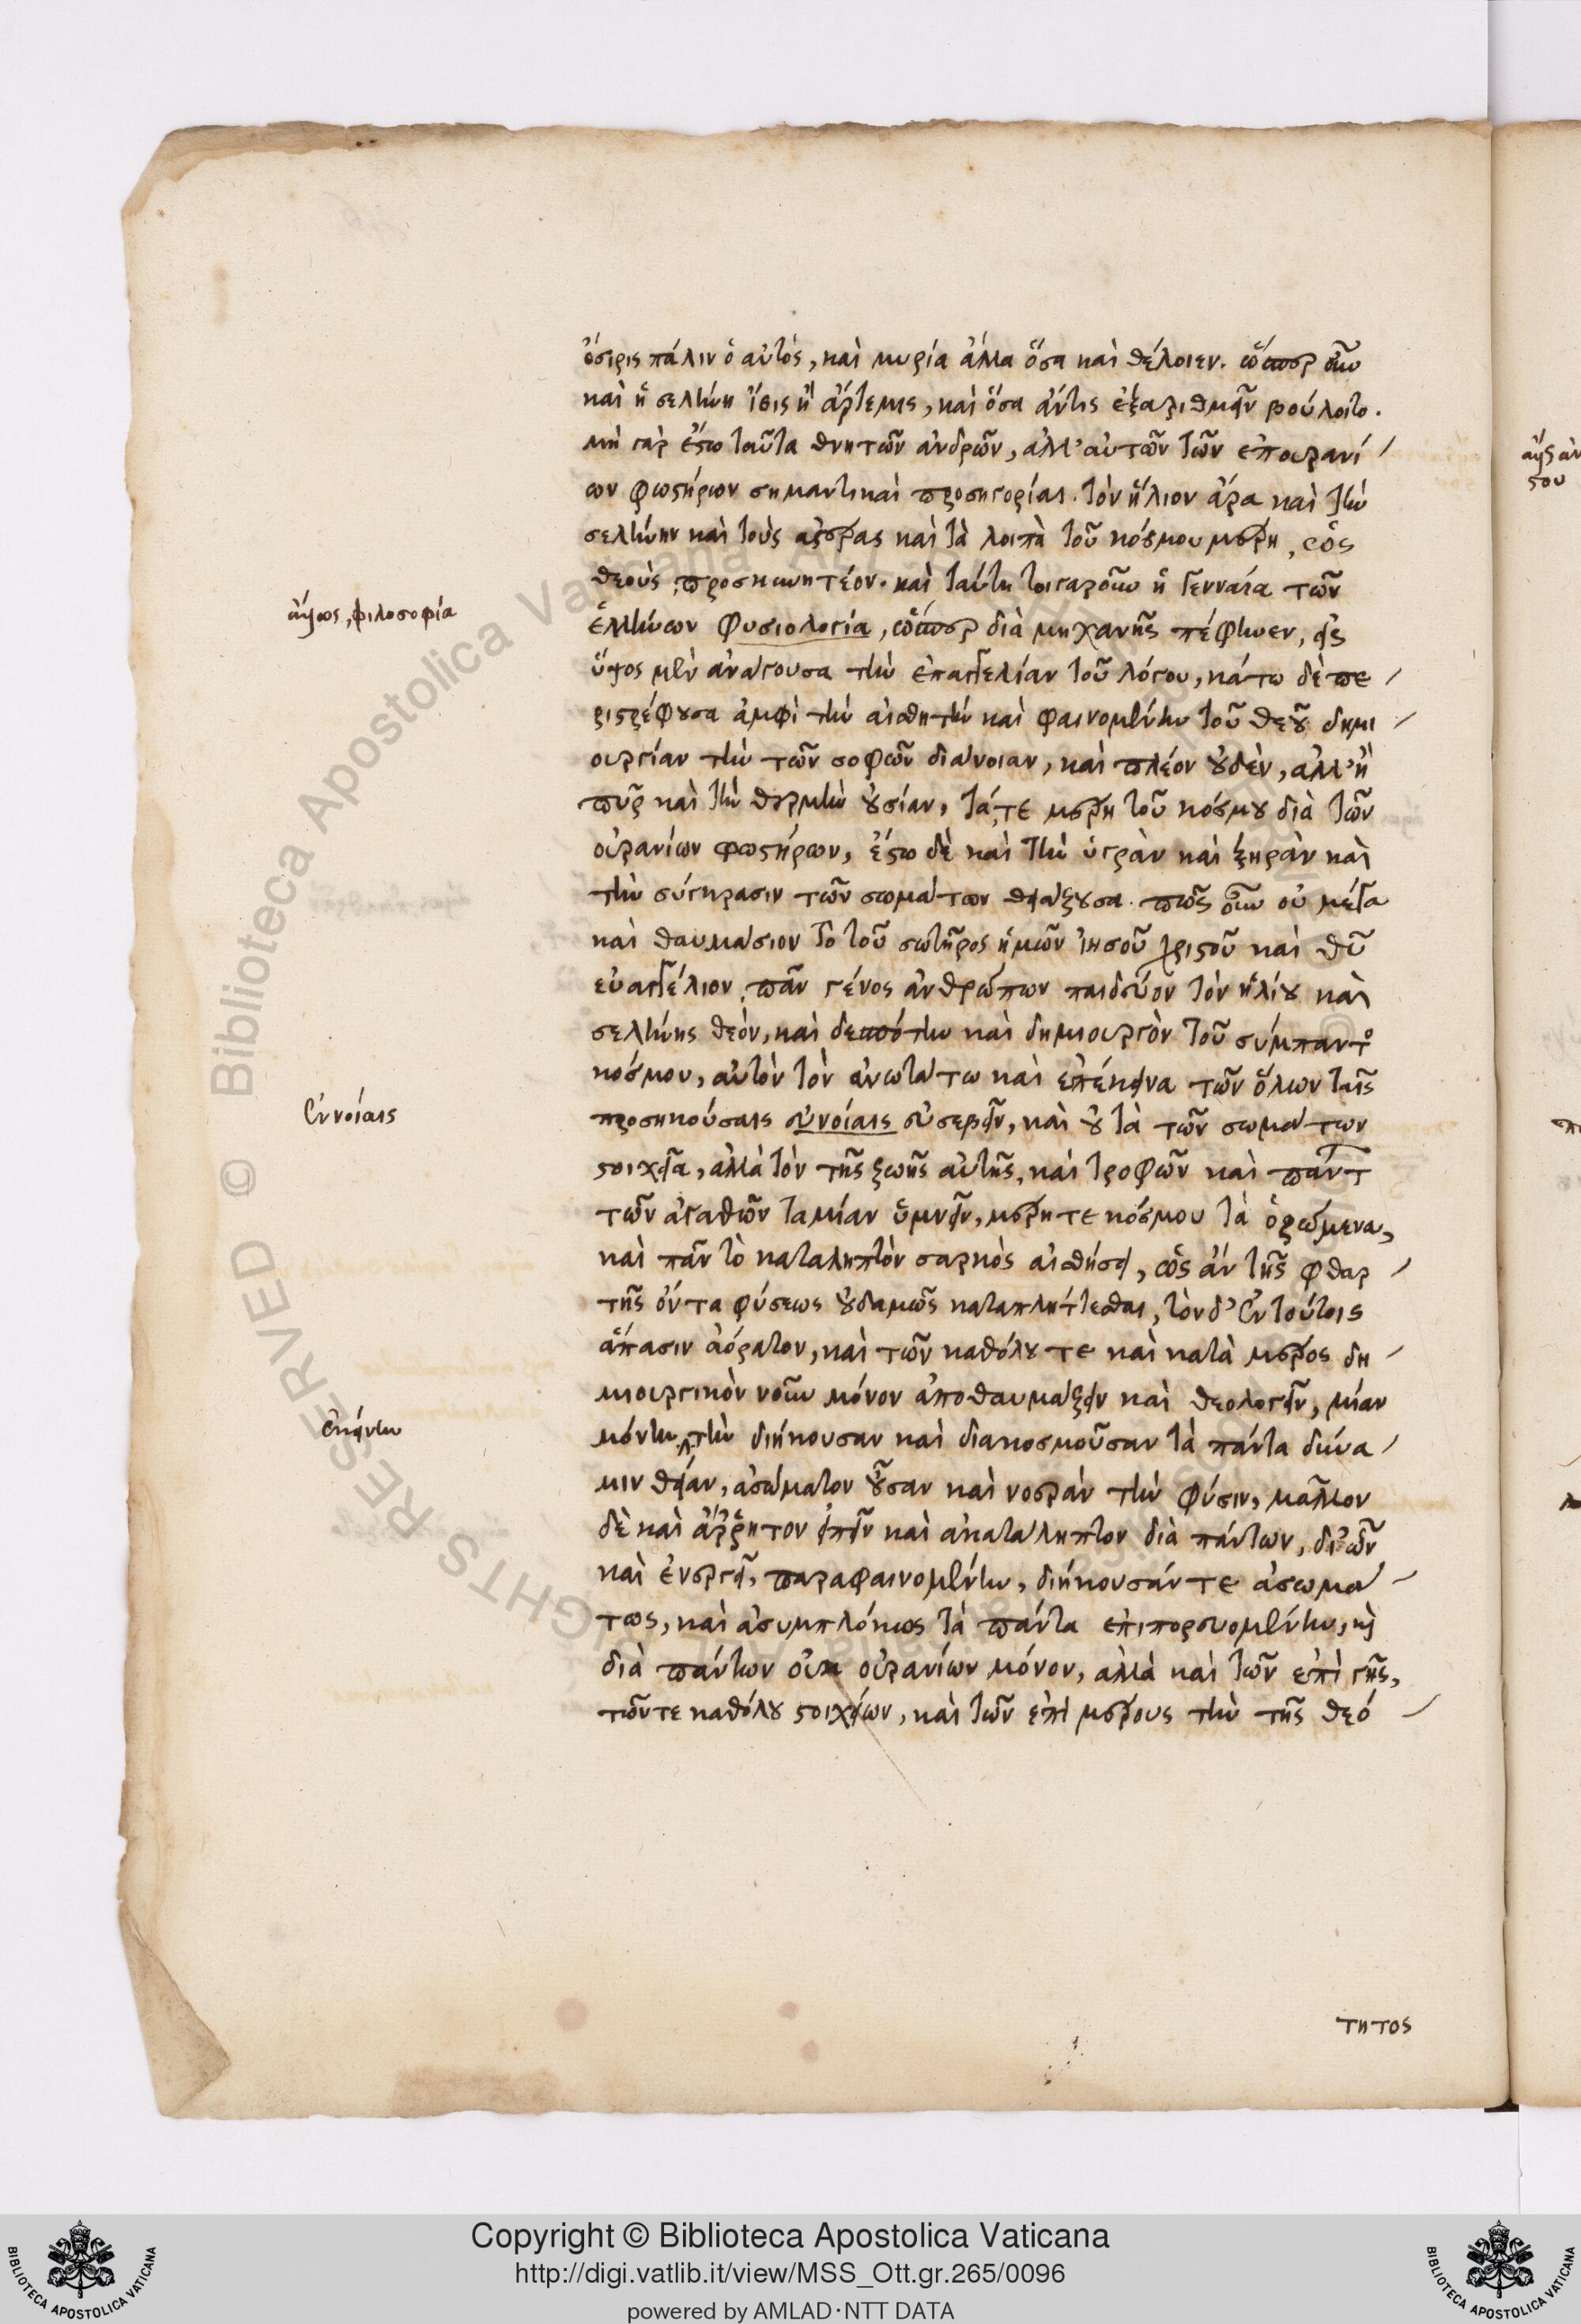 ὄσιρις πάλιν ὁ αὐτός, καὶ μυρία ἄλλα ὅσα καὶ θέλοιεν. ὥσπερ οὖν
καὶ ἡ σελήνη ἴσις ἢ ἄρτεμις, καὶ ὅσα ἄντις ἐξαριθμεῖν βούλοιτο.
μὴ γὰρ ἔστω ταῦτα θνητῶν ἀνδρῶν, ἀλλ' αὐτῶν τῶν ἐπουρανί
ων φωστήρων σημαντικαὶ προσηγορίαι. τὸν ἥλιον ἄρα καὶ τὴν
σελήνην καὶ τοὺς ἀστέρας καὶ τὰ λοιπὰ τοῦ κόσμου μέρη, ὡς
θεοὺς προσκυνητέον. καὶ ταύτη τοιγαροῦν ἡ γενναία τῶν
ἑλλήνων φυσιολογία, ὥσπερ διὰ μηχανῆς πέφηνεν, εἰς
ὕψος μὲν ἀνάγουσα τὴν ἐπαγγελίαν τοῦ λόγου, κάτω δὲ πε
ριστρέφουσα ἀμφὶ τὴν αἰσθητὴν καὶ φαινομένην τοῦ θεοῦ δημι
ουργίαν τὴν τῶν σοφῶν διάνοιαν, καὶ πλέον οὐδὲν, ἀλλ' ἢ
πῦρ καὶ τὴν θερμὴν οὐσίαν, τά, τε μέρη τοῦ κόσμου διὰ τῶν
οὐρανίων φωστήρων, ἔστω δὲ καὶ τὴν ὑγρὰν καὶ ξηρὰν καὶ
τὴν σύγκρασιν τῶν σωμάτων θειάζουσα. πῶς οὖν οὐ μέγα
καὶ θαυμάσιον τὸ τοῦ σωτῆρος ἡμῶν ἰησοῦ χριστοῦ καὶ θῦ
εὐαγγέλιον, πᾶν γένος ἀνθρώπων παιδεῦον τὸν ἡλίου καὶ
σελήνης θεὸν, καὶ δεσπότην καὶ δημιουργὸν τοῦ σύμπαντος
κόσμου, αὐτὸν τὸν ἀνωτάτω καὶ ἐπέκεινα τῶν ὅλων ταῖς
προσηκούσαις εὐνοίαις εὐσεβεῖν, καὶ οὐ τὰ τῶν σωμάτων
στοιχεῖα, ἀλλὰ τὸν τῆς ζωῆς αὐτῆς, καὶ τροφῶν καὶ πάντων
τῶν ἀγαθῶν ταμίαν ὑμνεῖν, μέρη τε κόσμου τὰ ὁρώμενα,
καὶ πᾶν τὸ καταληπτὸν σαρκὸς αἰσθήσει, ὡς ἂν τῆς φθαρ
τῆς ὄντα φύσεως οὐδαμῶς καταπλήττεσθαι, τὸν δ' ἐν τούτοις
ἅπασιν ἀόρατον, καὶ τῶν καθόλου τε καὶ κατὰ μέρος δη
μιουργικὸν νοῦν μόνον ἀποθαυμάζειν καὶ θεολογεῖν, μίαν
μόνην τὴν διήκουσαν καὶ διακοσμοῦσαν τὰ πάντα δύνα
μιν θείαν, ἀσώματον οὖσαν καὶ νοερὰν τὴν φύσιν, μᾶλλον
δὲ καὶ ἄῤῥητον εἰπεῖν καὶ ἀκατάληπτον διὰ πάντων, δι' ὧν
καὶ ἐνεργεῖ, παραφαινομένην, διήκουσάν τε ἀσωμά
τως, καὶ ἀσυμπλόκως τὰ πάντα ἐπιπορευομένην, καὶ
διὰ πάντων οὐκ οὐρανίων μόνον, ἀλλὰ καὶ τῶν ἐπὶ γῆς,
τῶν τε καθόλου στοιχείων, καὶ τῶν ἐπὶ μέρους τὴν τῆς θεό
τητος
φιλοσοφία
ἐννοίαις
ἐκείνην
© Biblioteca Apostolica Vaticana ALL RIGHTS RESERVED
Copyright © Biblioteca Apostolica Vaticana
http://digi.vatlib.it/view/MSS_Ott.gr.265/0096
powered by AMLAD·NTT DATA
BIBLIOTECA APOSTOLICA VATICANA
BIBLIOTECA APOSTOLICA VATICANA